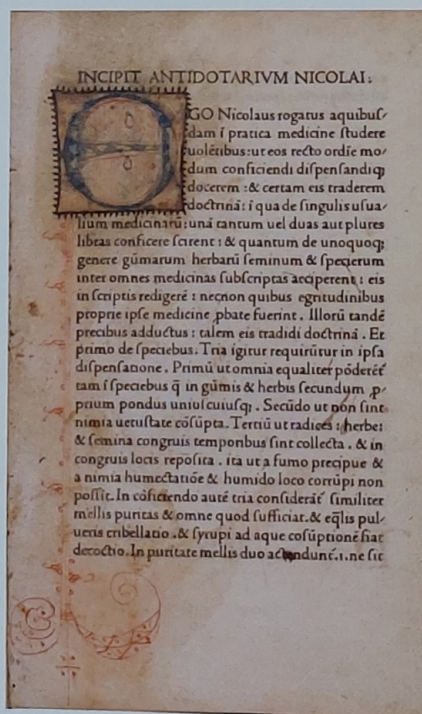 INCIPIT ANTIDOTARIVM NICOLAI:
EGO Nicolaus rogatus a quibus/
dam ī pratica medicine studere
uolētibus: ut eos recto ordīe mo/
dum conficiendi dispensandiqꝫ
docerem: & certam eis traderem
doctrinā: ī qua de singulis usua/
lium medicinarū: unā tantum uel duas aut plures
libras conficere scirent: & quantum de unoquoqꝫ
genere gūmarum herbarū seminum & specierum
inter omnes medicinas subscriptas acciperent: eis
in scriptis redigerē: necnon quibus egritudinibus
proprie ipse medicine ꝓbate fuerint. Illorū tandē
precibus adductus: talem eis tradidi doctrinā. Et
primo de speciebus. Tria igitur requirūtur in ipsa
dispensatione. Primū ut omnia equaliter pōderēt̄
tam ī speciebus q̄ in gūmis & herbis secundum ꝓ-
prium pondus uniuscuiusqꝫ. Secūdo ut non sint
nimia uetustate cōsūpta. Tertiū ut radices: herbe:
& semina congruis temporibus sint collecta. & in
congruis locis reposita. ita ut a fumo precipue &
a nimia humectatiōe & humido loco corrūpi non
possit. In cōficiendo autē tria considerāt̄ similiter
mellis puritas & omne quod sufficiat. & eq̄lis pul/
ueris cribellatio. & syrupi ad aque cōsūptionē fiat
decoctio. In puritate mellis duo actendunt̄. i. ne sit